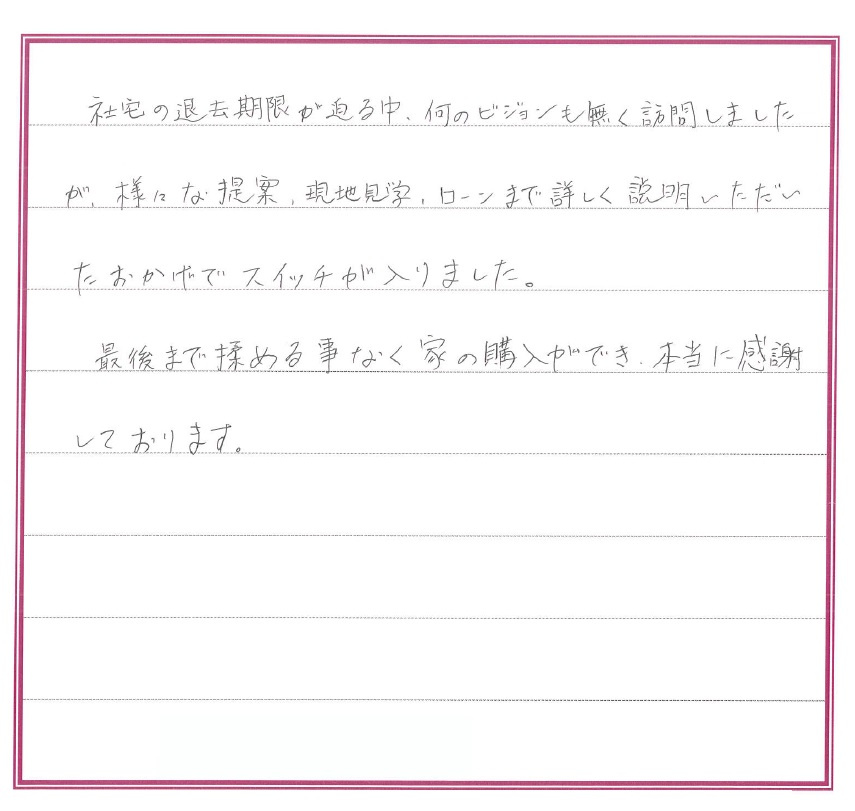 社宅の退去期限が迫る中、何のビジョンも無く訪問しました
が、様々な提案、現地見学、ローンまで詳しく説明いただい
たおかげでスイッチが入りました。
最後まで揉める事なく家の購入ができ、本当に感謝
しております。